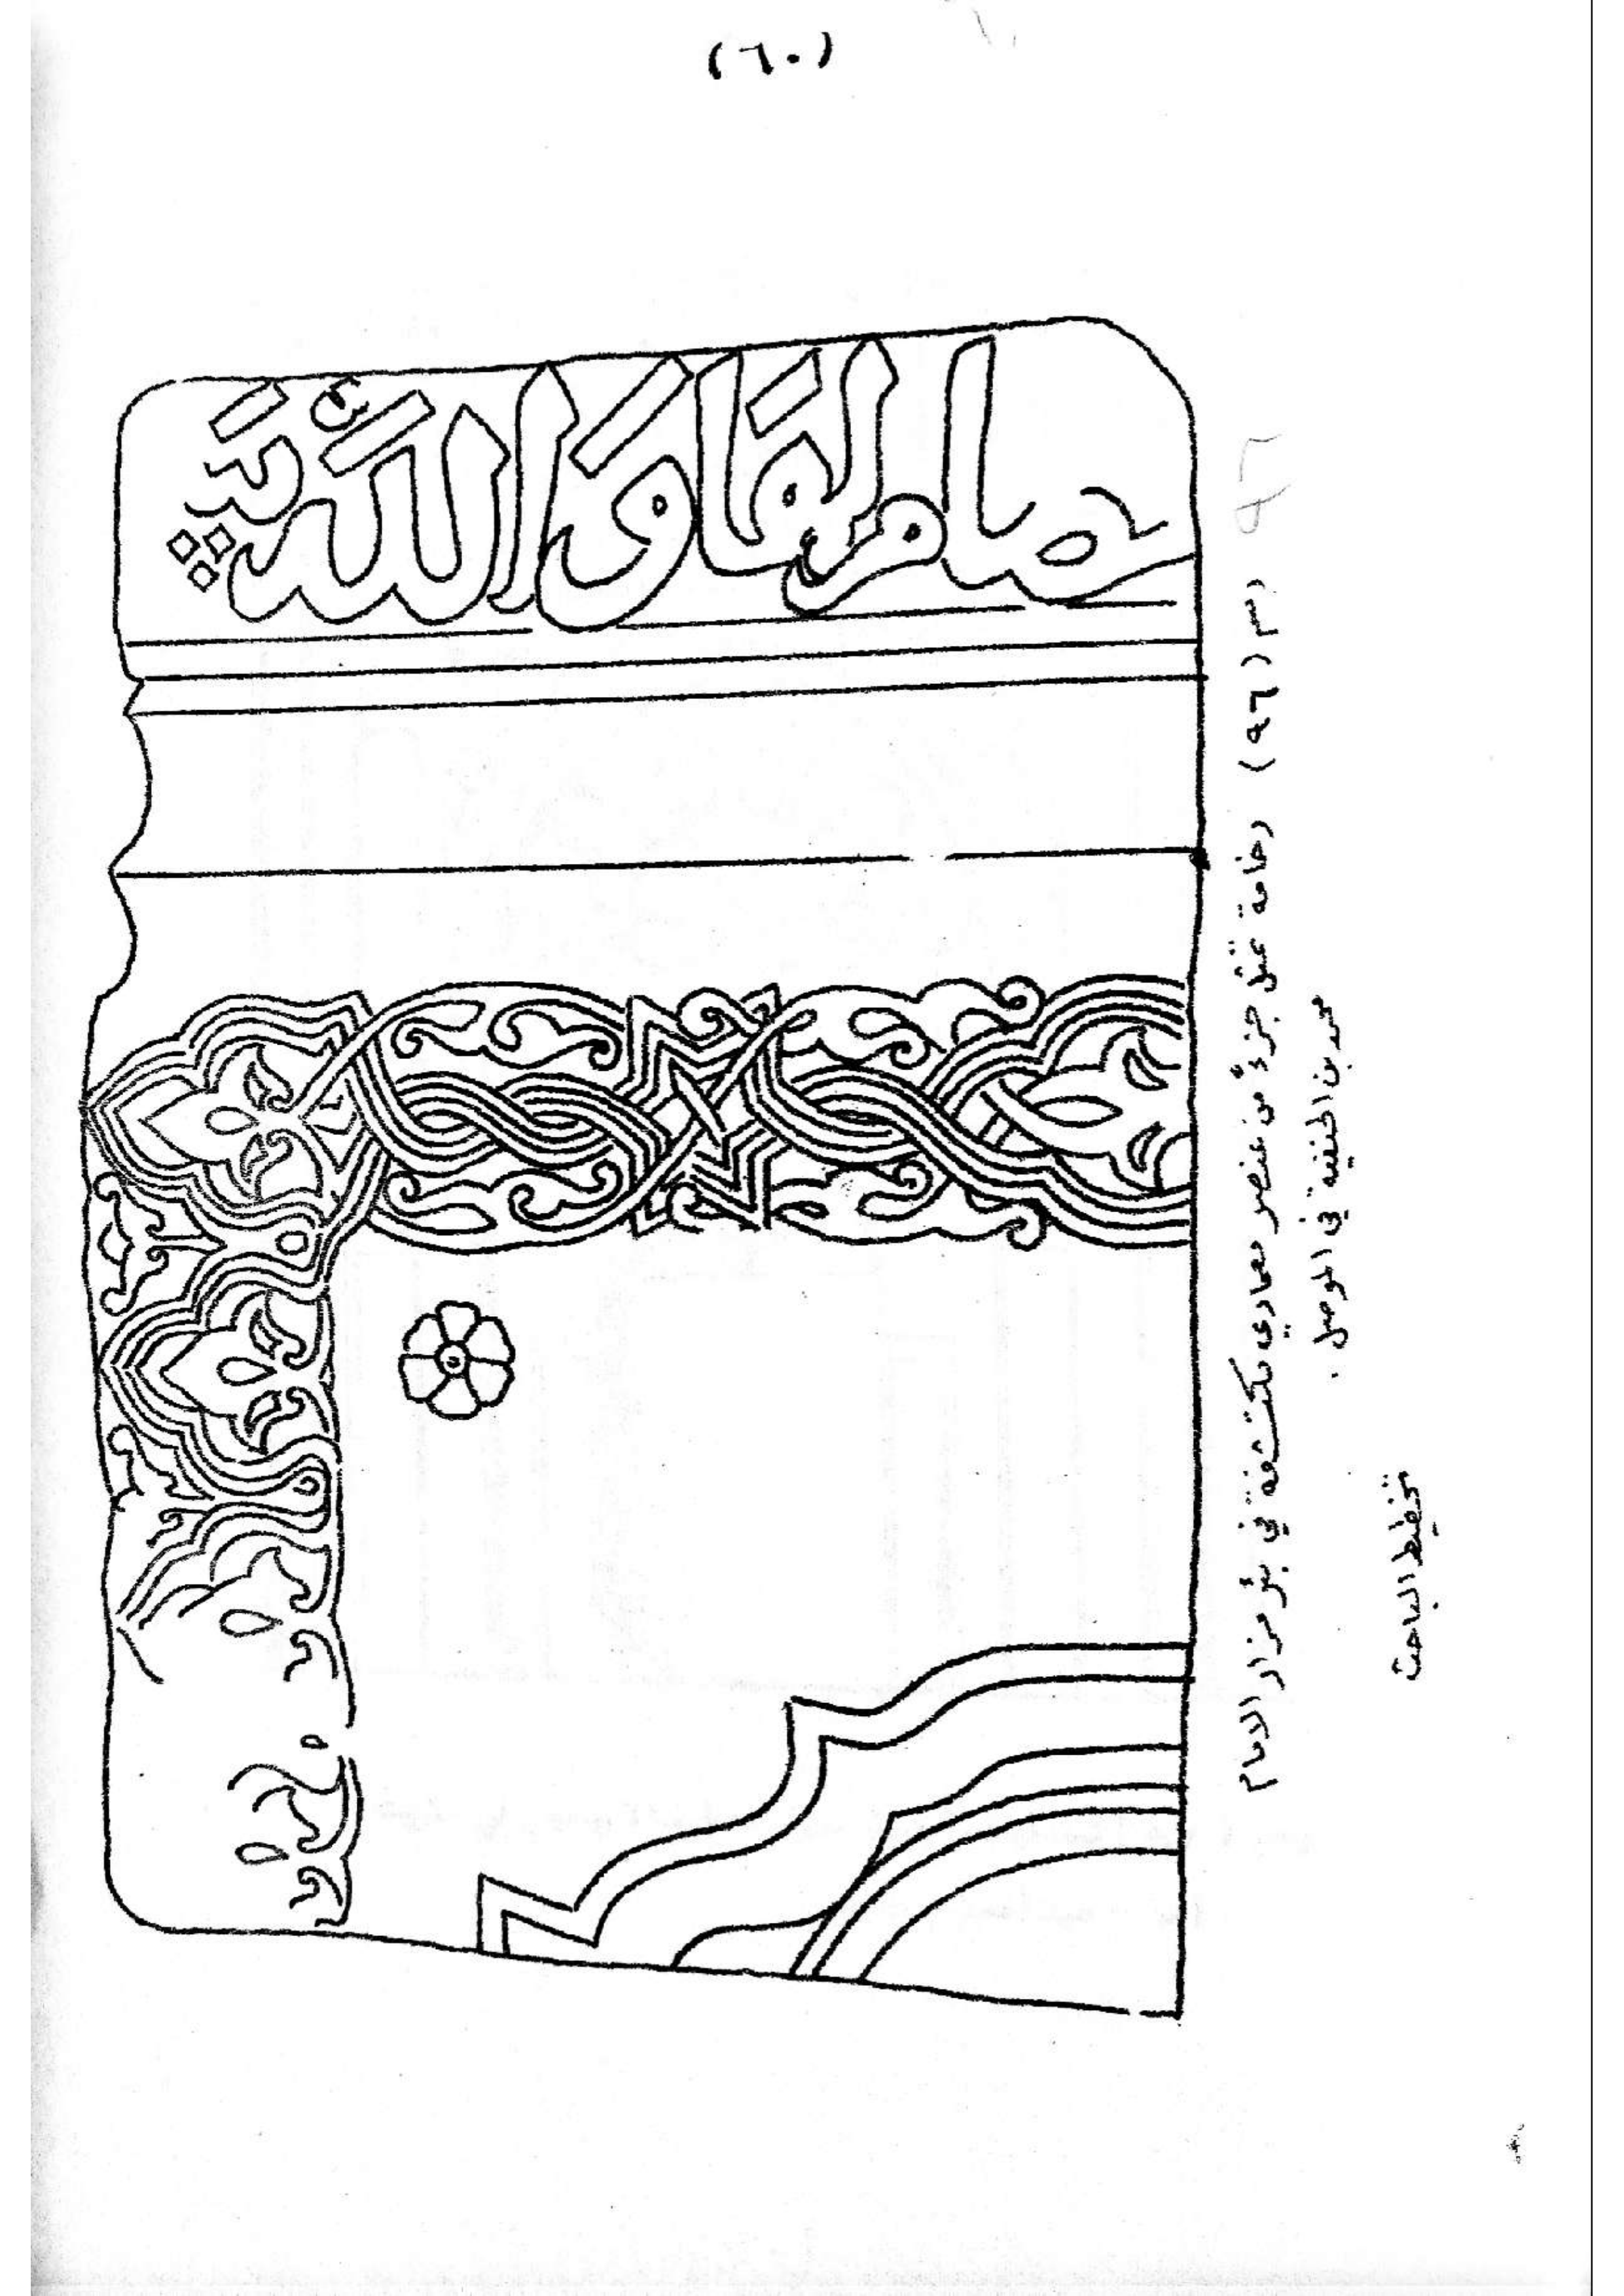 (٦٠)
الله
(٩٦) رخامة تمثل جزءً من عنصر معماري مكتشفة في بئر مزار الامام
محمد بن الحنفية في الموصل .
تخطيط الباحث